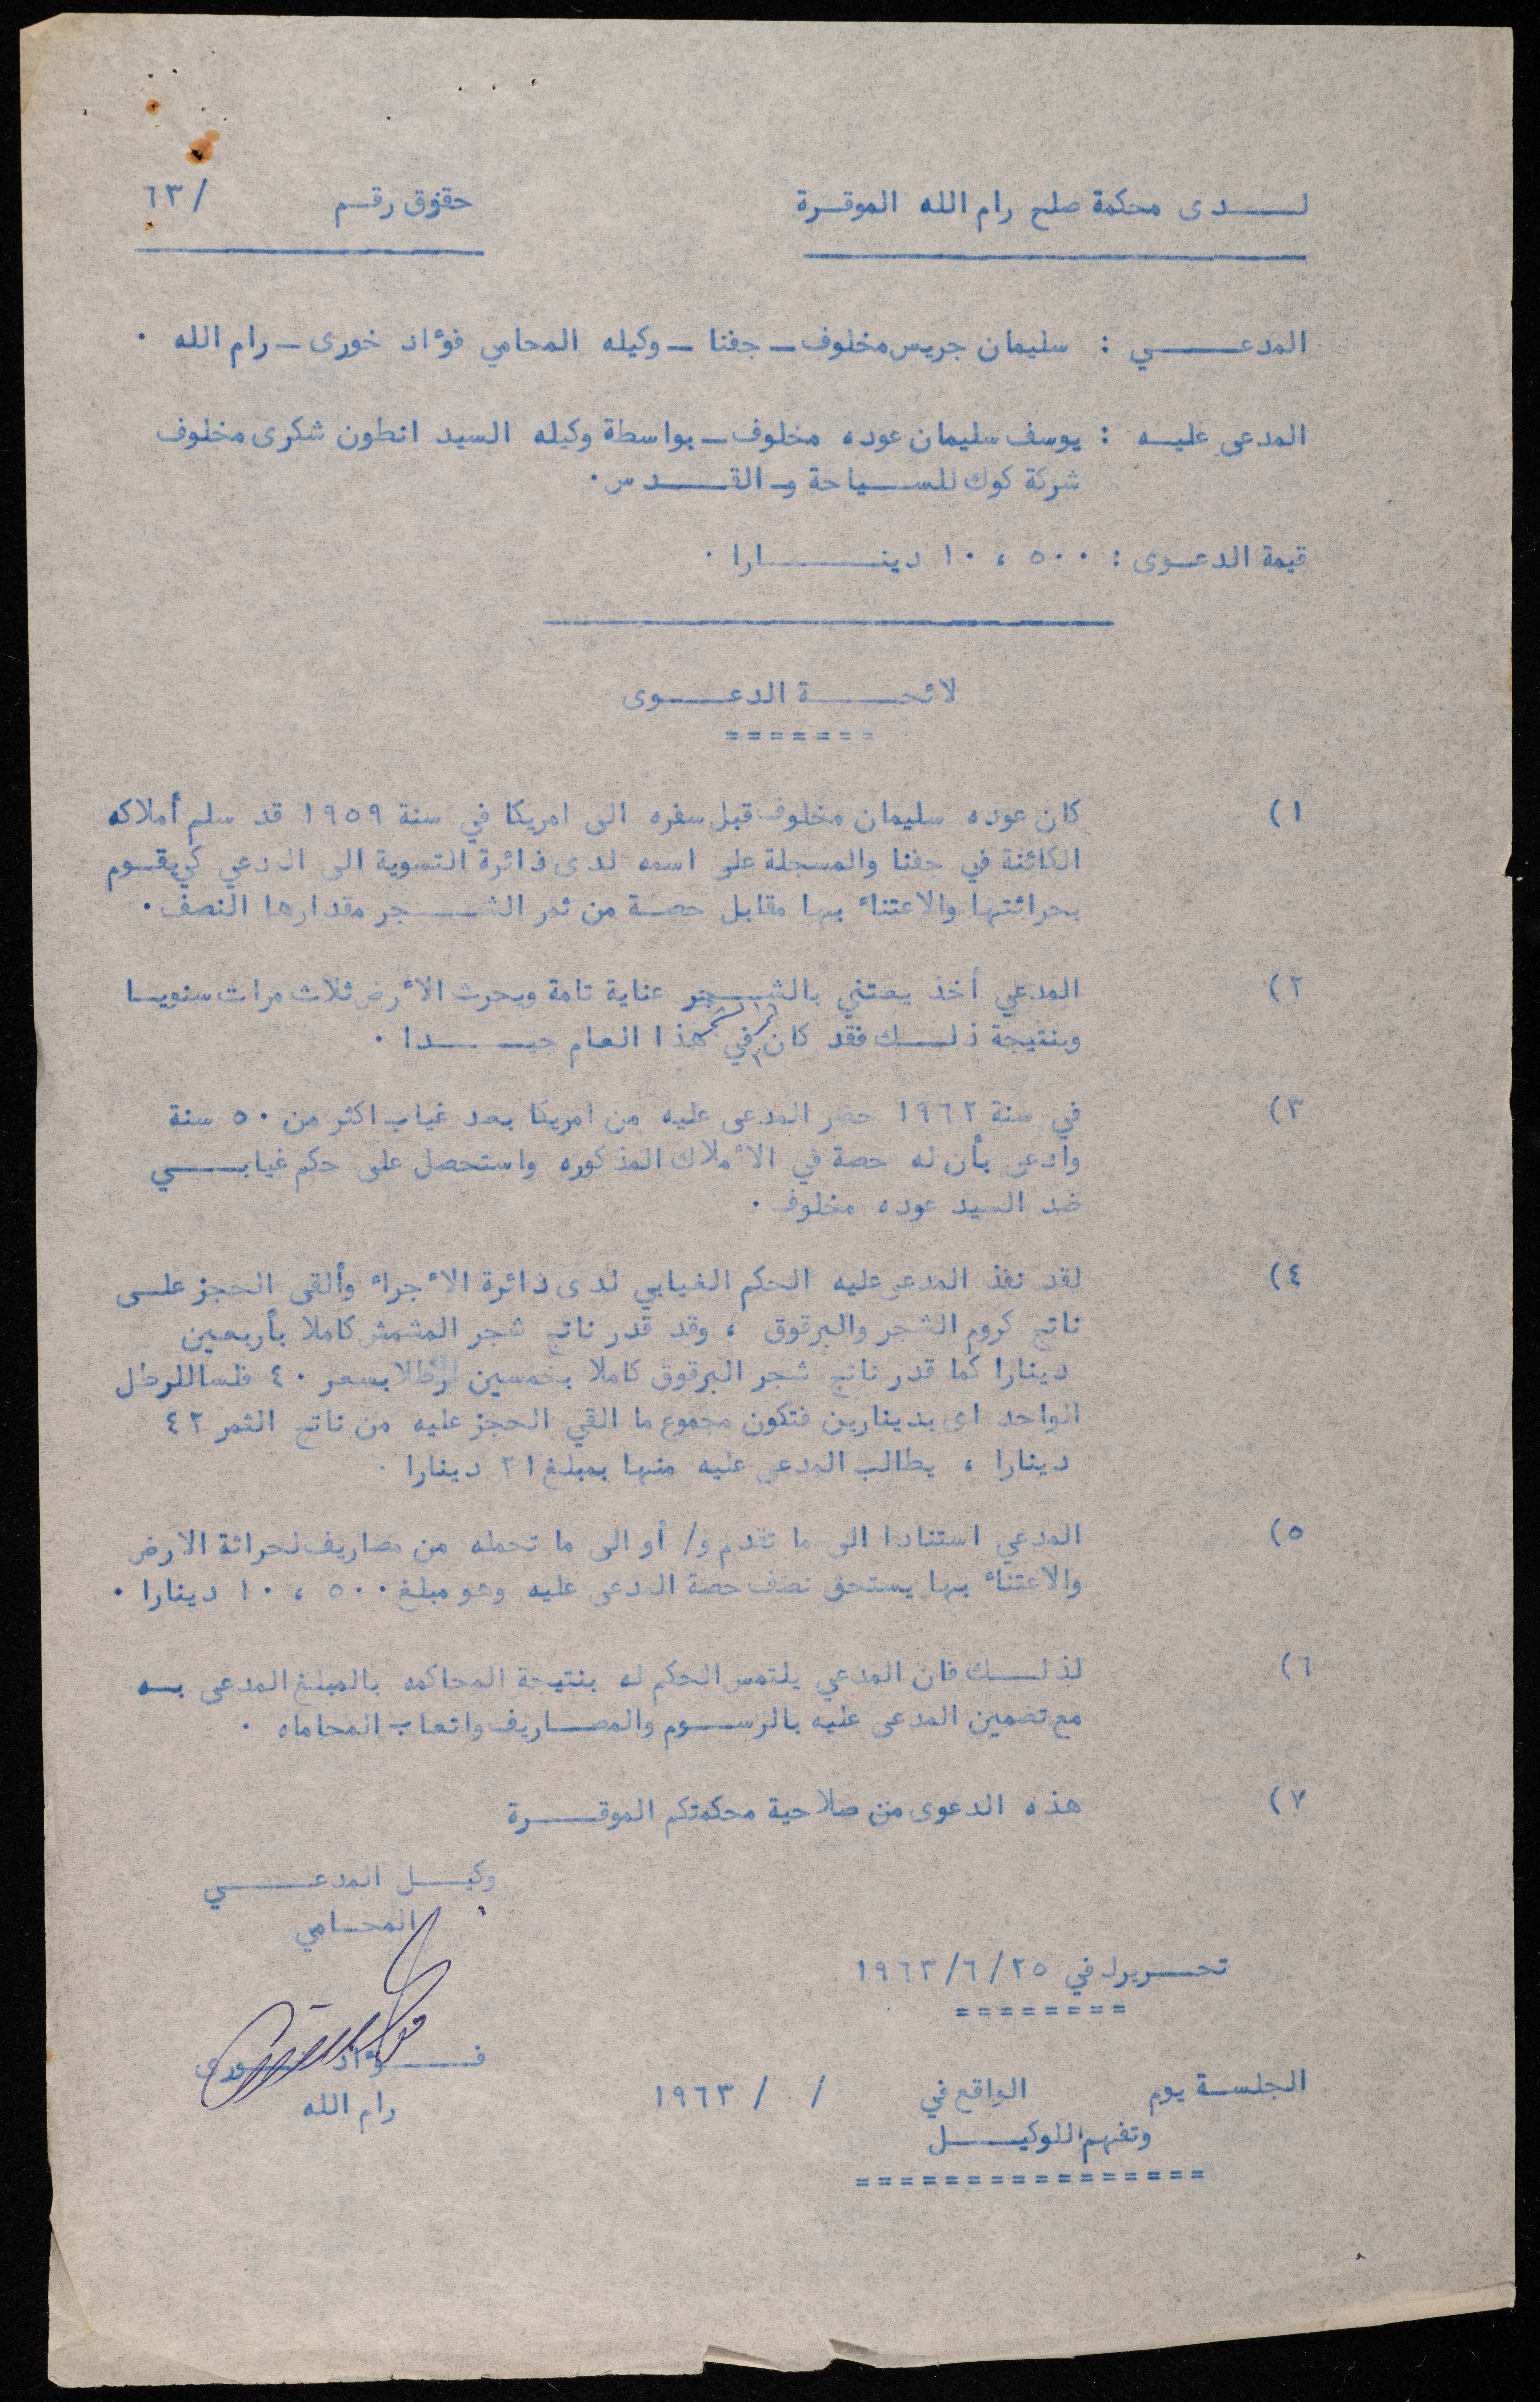 لـــدى محكمة صلح رام الله الموقـرة
حقوق رقـم / ٦٣
المدعـــــي : سليمان جريس مخلوف ـ جفنا ـ وكيله المحامي فؤاد خورى ـ رام الله ٠
المدعى عليـه : يوسف سليمان عوده مخلوف ـ بواسطة وكيله السيد انطون شكرى مخلوف
شركة كوك للســياحة و القــــدس ٠
قيمة الدعـوى : ٥٠٠ ، ١٠ دينــــــارا ٠
لائحــــــة الدعــــوى
=======
١) كان عوده سليمان مخلوف قبل سفره الى امريكا في سنة ١٩٥٩ قد سلم أملاكه
الكائنة في جفنا والمسجلة على اسمه لدى دائرة التسوية الى المدعي كي يقــوم
بحراثتها والاعتناء بها مقابل حصـة من ثمر الشـــجر مقدارها النصف ٠
٢) المدعي أخذ يعتني بالشـــجر عناية تامة ويحرث الأرض ثلاث مرات سنويـا
ثمر الشجر
وبنتيجة ذلــــك فقد كان في هذا العام جيـــــدا ٠
٣) في سنة ١٩٦٢ حضر المدعى عليه من امريكا بعد غياب اكثر من ٥٠ سنة
وادعى بأن له حصة في الأملاك المذكوره واستحصل على حكم غيابـــــي
ضد السيد عوده مخلوف ٠
٤) لقد نفذ المدعى عليه الحكم الغيابي لدى دائرة الأجراء وألقى الحجز علـى
ناتج كروم الشجر والبرقوق ، وقد قدر ناتج شجر المشمش كاملا بأربعين
دينارا كما قدر ناتج شجر البرقوق كاملا بخمسين رطلا بسعر ٤٠ فلسا للرطل
الواحد اى بدينارين فتكون مجموع ما القي الحجز عليه من ناتج الثمر ٤٢
دينارا ، يطالب المدعى عليه منها بمبلغ ٢١ دينارا ٠
٥) المدعي استنادا الى ما تقدم و/ أو الى ما تحمله من مصاريف لحراثة الارض
والاعتناء بها يستحق نصف حصة المدعى عليه وهو مبلغ ٥٠٠ ، ١٠ دينارا ٠
٦) لذلـــك فان المدعي يلتمس الحكم له بنتيجة المحاكمه بالمبلغ المدعى بـه
مع تضمين المدعى عليه بالرســـوم والمصــاريف واتعاب المحاماه ٠
٧) هذه الدعوى من صلاحية محكمتكم الموقــــرة
وكيـــل المدعـــــي
المحــامي
تحـــريرا في ٢٥/ ٦/ ١٩٦٣
========
فــــؤاد خـــورى
رام الله
الجلســة يوم الواقع في / / ١٩٦٣
وتفهم للوكيـــــل
================